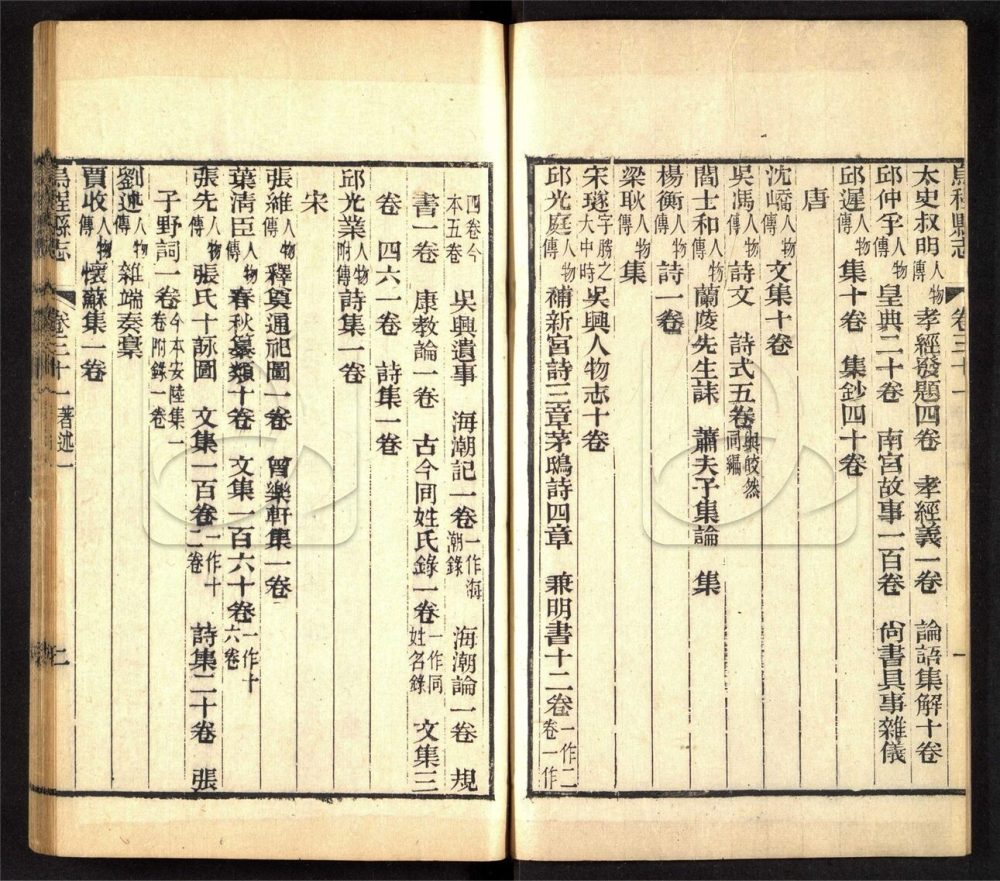 烏程縣志 卷三十一 一
太史叔明人物傳 孝經發題四卷 孝經義一卷 論語集解十卷
邱仲孚人物傳 皇典二十卷 南宮故事一百卷 尙書具事雜儀
邱遲人物傳 集十卷 集鈔四十卷
唐
沈嶠人物傳 文集十卷
吳馮人物傳 詩文 詩式五卷與皎然同編
閻士和人物傳 蘭陵先生誄 蕭夫子集論 集
楊衡人物傳 詩一卷
梁耿人物傳 集
宋璲字勝之大中時 吳興人物志十卷
邱光庭人物傳 補新宮詩三章茅鴟詩四章 兼明書十二卷一作二卷一作
四卷今本五卷 吳興遺事 海潮記一卷一作海潮錄 海潮論一卷 規
書一卷 康教論一卷 古今同姓氏錄一卷一作同姓名錄 文集三
卷 四六一卷 詩集一卷
邱光業人物附傳 詩集一卷
宋
張維人物傳 釋奠通祀圖一卷 曾樂軒集一卷
葉清臣人物傳 春秋纂類十卷 文集一百六十卷一作十六卷
張先人物傳 張氏十詠圖 文集一百卷一作十二卷 詩集二十卷 張
子野詞一卷今本安陸集一卷附錄一卷
劉述人物傳 雜端奏稾
賈收人物傳 懷蘇集一卷
烏程縣志 卷三十一 著述一 二